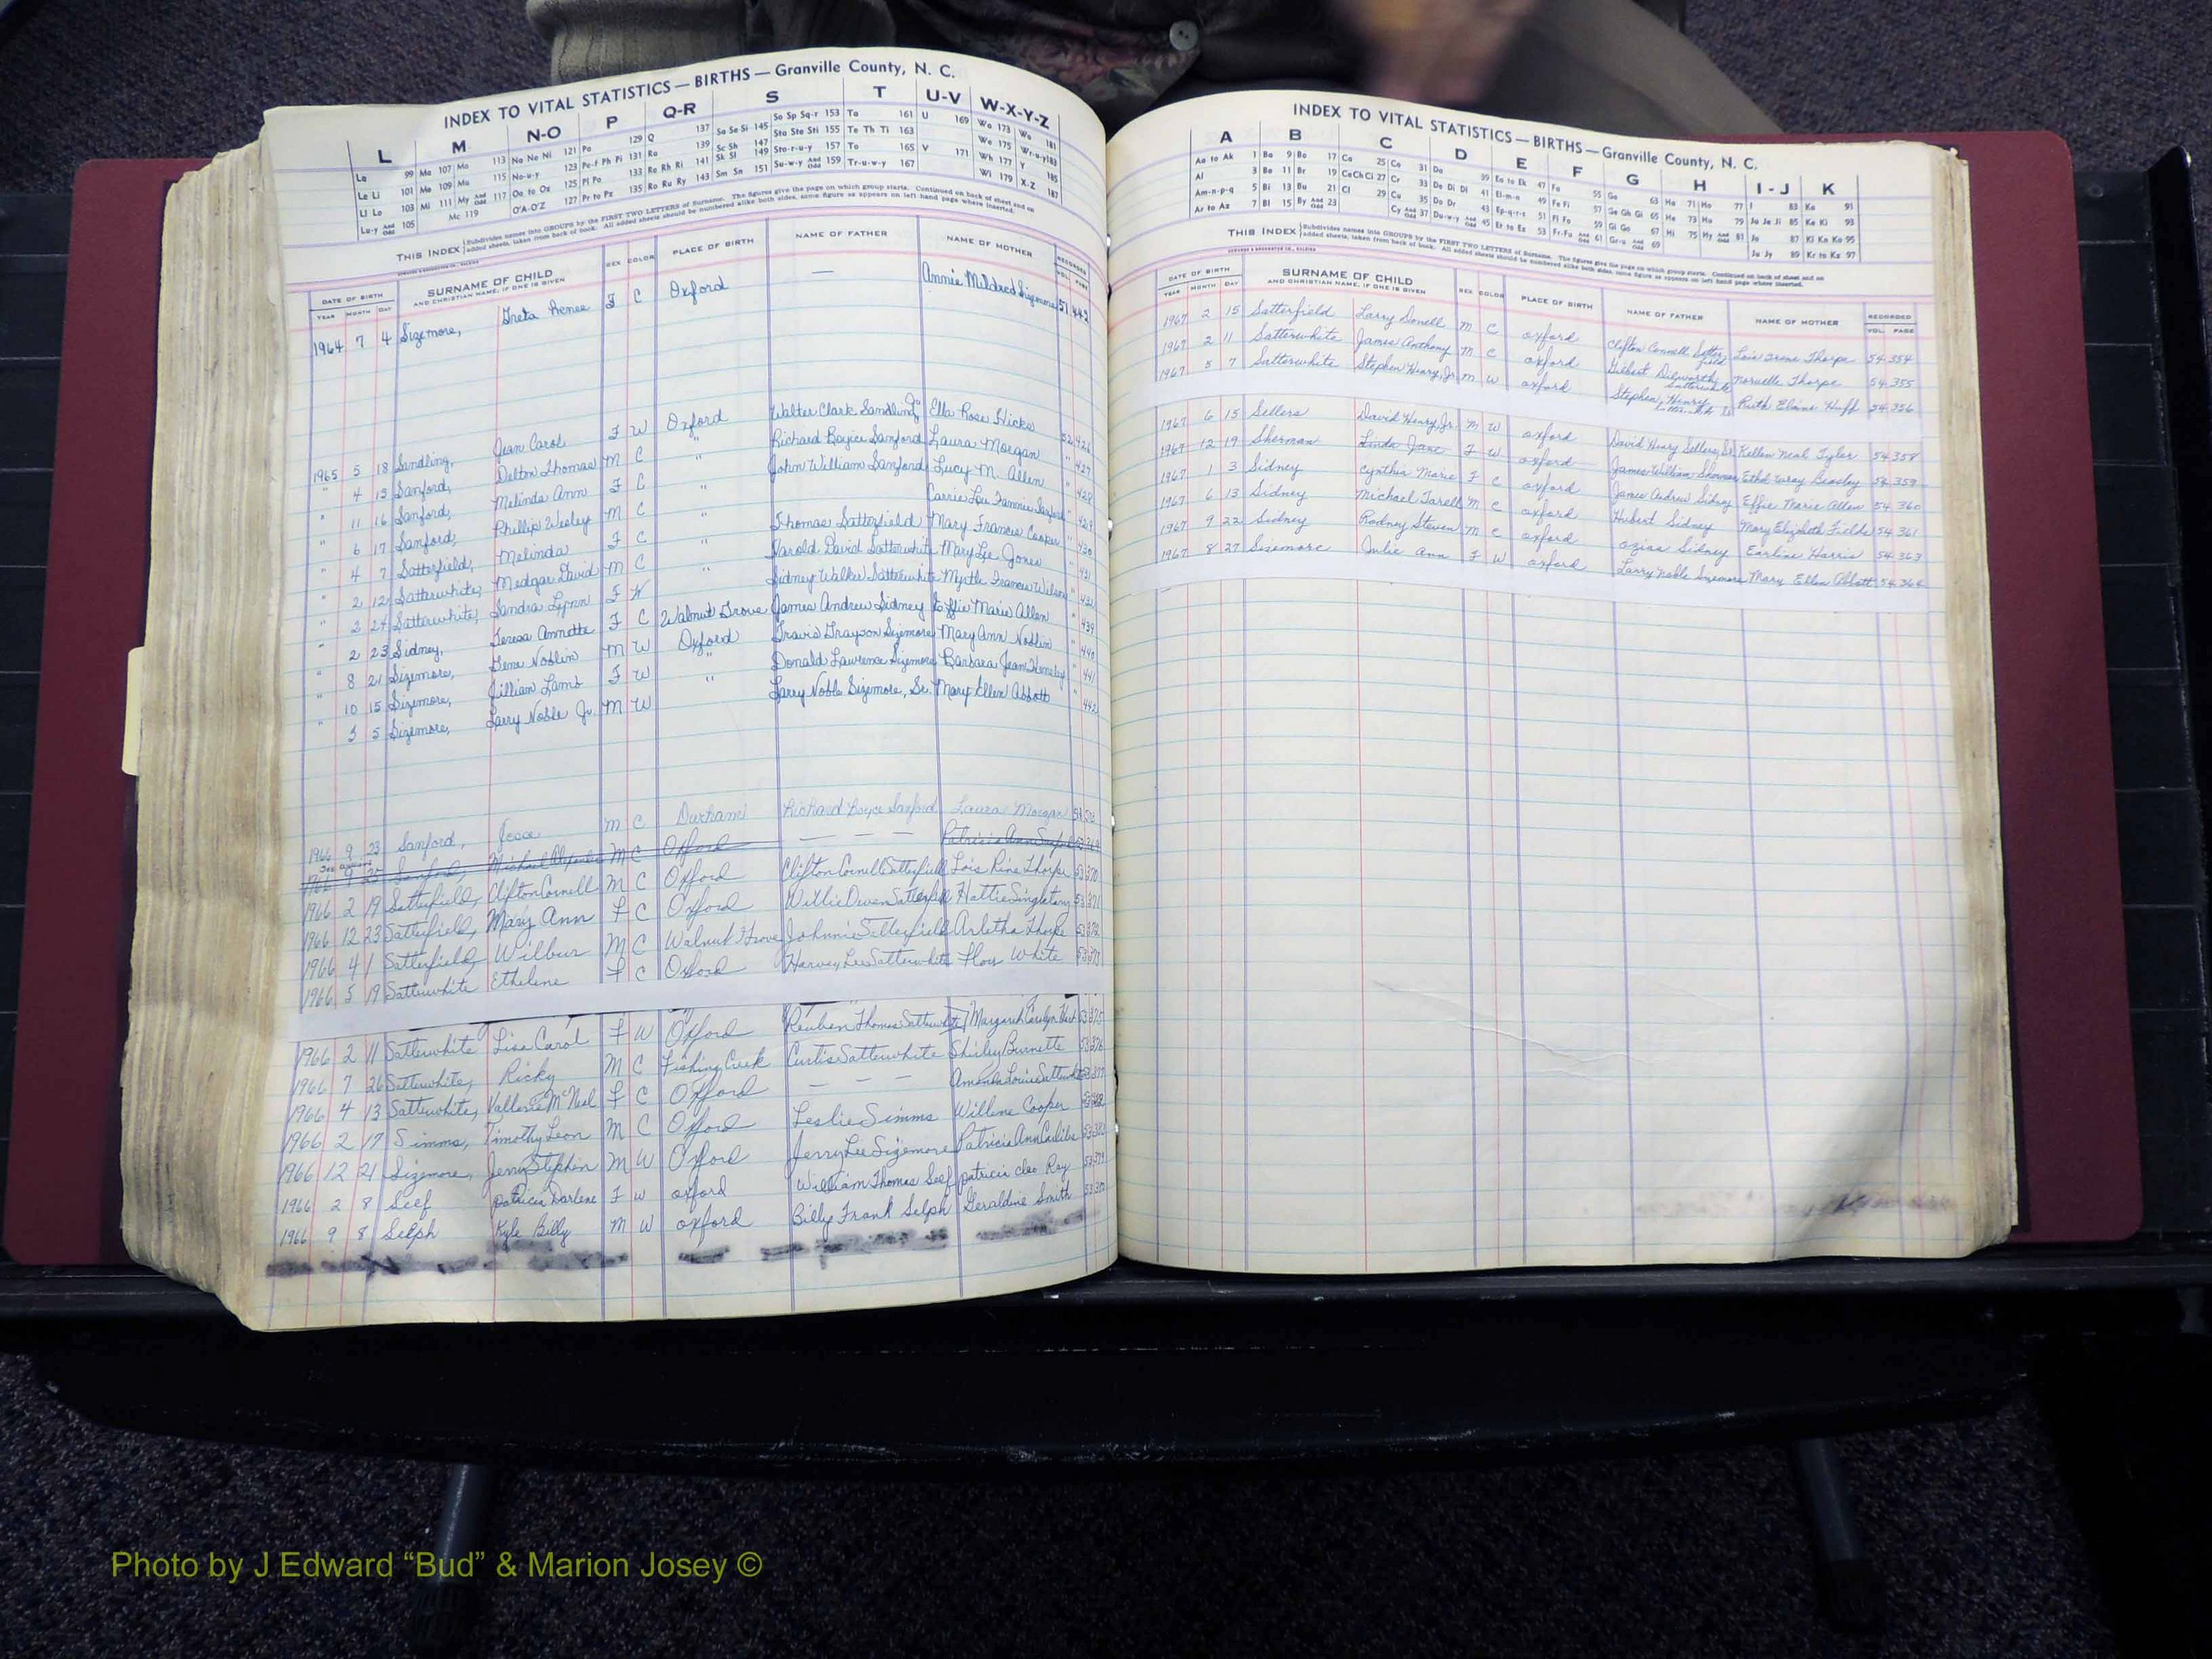 INDEX TO VITAL STATISTICS — BIRTHS — Granville County, N. C.
L M N-O P Q-R S T U-V W-X-Y-Z
La 99 Ma 107 Mo 113 Na Ne Ni 121 Pa 129 Q 137 Sa Se Si 145 So Sp Sq-r 153 Ta 161 U 169 Wa 173 Wo 181
Le Li 101 Me 109 Mu 115 No-u-y 123 Pe-f Ph Pi 131 Ra 139 Sc Sh 147 Sta Ste Sti 155 Te Th Ti 163 We 175 Wr-u-y 183
Ll Lo 103 Mi 111 My And Odd 117 Oa to Oz 125 Pl Po 133 Re Rh Ri 141 Sk Sl 149 Sto-r-u-y 157 To 165 V 171 Wh 177 Y 185
Lu-y And Odd 105 Mc 119 O'A-O'Z 127 Pr to Pz 135 Ro Ru Ry 143 Sm Sn 151 Su-w-y And Odd 159 Tr-u-w-y 167 Wi 179 X-Z 187
THIS INDEX Subdivides names into GROUPS by the FIRST TWO LETTERS of Surname. The figures give the page on which group starts. Continued on back of sheet and on
added sheets, taken from back of book. All added sheets should be numbered alike both sides, same figure as appears on left hand page where inserted.
DATE OF BIRTH SURNAME OF CHILD SEX COLOR PLACE OF BIRTH NAME OF FATHER NAME OF MOTHER RECORDED
YEAR MONTH DAY AND CHRISTIAN NAME, IF ONE IS GIVEN PAGE
1964 7 4 Sizemore, Greta Renee F C Oxford — Annie Mildred Sizemore 51 442
1965 5 18 Sandling, Jean Carol F W Oxford Walter Clark Sandling Ella Rose Hicks 52 426
" 4 15 Sanford, Delton Thomas M C " Richard Boyice Sanford Laura Morgan " 427
" 11 16 Sanford, Melinda Ann F C John William Sanford Lucy M. Allen " 428
" 6 17 Sanford, Phillip Wesley M C " Carrie Lou Fannie Sanford " 429
" 4 7 Satterfield, Melinda F C " Thomas Satterfield Mary Frances Cooper " 430
" 2 12 Satterwhite, Medgar David M C Harold David Satterwhite Mary Lee Jones " 431
" 2 24 Satterwhite, Sandra Lynn F W " Sidney Walker Satterwhite Myrtle Frances Wilson " 432
" 2 23 Sidney, Teresa Annette F C Walnut Grove James Andrew Sidney Effie Marie Allen " 439
" 8 21 Sizemore, Gene Noblin M W Oxford Travis Grayson Sizemore Mary Ann Noblin " 440
" 10 15 Sizemore, Jillian Lamb F W " Donald Lawrence Sizemore Barbara Jean " 441
" 3 5 Sizemore, Larry Noble Jr. M W " Larry Noble Sizemore, Sr. Mary Ellen Abbott " 442
1966 9 23 Sanford, Jesse M C Durham Richard Boyce Sanford Laura Morgan
1966 9 25 Sanford, Michael M C Oxford — — — Patricia Ann Sanford 53 369
1966 2 19 Satterfield, Clifton Cornell M C Oxford Clifton Cornell Satterfield Lois Rine Thorpe 53 370
1966 12 23 Satterfield, Mary Ann F C Oxford Willie Owen Satterfield Hattie Singletary 53 371
1966 4 1 Satterfield, Wilbur M C Walnut Grove Johnnie Satterfield Arletha Thorpe 53 372
1966 5 19 Satterwhite Ethelene F C Oxford Harvey Lee Satterwhite Flora White 53 373
1966 2 11 Satterwhite Lisa Carol F W Oxford Reuben Thomas Satterwhite Margaret Carolyn 53 375
1966 7 26 Satterwhite, Ricky M C Fishing Creek Curtis Satterwhite Shirley Burnette 53 376
1966 4 13 Satterwhite, Vallerie McNeal F C Oxford — — — Amanda Louise Satterwhite 53 377
1966 2 17 Simms, Timothy Leon M C Oxford Leslie Simms Willene Cooper
1966 12 21 Sizemore, Jerry Stephen M W Oxford Jerry Lee Sizemore Patricia Ann
1966 2 8 Seef patricia Darlene F W oxford William Thomas Seef patricia cleo Ray 53 379
1966 9 8 Selph Kyle Billy M W oxford Billy Frank Selph Geraldine Smith 53 380
INDEX TO VITAL STATISTICS — BIRTHS — Granville County, N. C.
A B C D E F G H I - J K
Aa to Ak 1 Ba 9 Bo 17 Ca 25 Co 31 Da 39 Ea to Ek 47 Fa 55 Ga 63 Ha 71 Ho 77 I 83 Ka 91
Al 3 Be 11 Br 19 Ce Ch Ci 27 Cr 33 De Di Dl 41 El-m-n 49 Fe Fi 57 Ge Gh Gi 65 He 73 Hu 79 Ja Je Ji 85 Ke Ki 93
Am-n-p-q 5 Bi 13 Bu 21 Cl 29 Cu 35 Do Dr 43 Ep-q-r-s 51 Fl Fo 59 Gl Go 67 Hi 75 Hy And Odd 81 Jo 87 Kl Kn Ko 95
Ar to Az 7 Bl 15 By And Odd 23 Cy And Odd 37 Du-w-y And Odd 45 Et to Ez 53 Fr-Fu And Odd 61 Gr-u And Odd 69 Ju Jy 89 Kr to Kz 97
THIS INDEX Subdivides names into GROUPS by the FIRST TWO LETTERS of Surname. The figures give the page on which group starts. Continued on back of sheet and on
added sheets, taken from back of book. All added sheets should be numbered alike both sides, same figure as appears on left hand page where inserted.
DATE OF BIRTH SURNAME OF CHILD SEX COLOR PLACE OF BIRTH NAME OF FATHER NAME OF MOTHER RECORDED
YEAR MONTH DAY AND CHRISTIAN NAME, IF ONE IS GIVEN VOL. PAGE
1967 2 15 Satterfield Larry Donell M C oxford Clifton Connell Satterfield Lois Irene Thorpe 54 354
1967 2 11 Satterwhite James Anthony M C oxford Gilbert Dilworth Satterwhite Thorpe 54 355
1967 5 7 Satterwhite Stephen Henry, Jr. M W oxford Stephen Henry Ruth Elaine Huff 54 356
1967 6 15 Sellers David Henry, Jr. M W oxford David Henry Sellers, Sr. Kellen Neal Tyler 54 358
1967 12 19 Sherman Linda Jane F W oxford James William Sherman Ethel Wray Beasley 54 359
1967 1 3 Sidney Cynthia Marie F C oxford James Andrew Sidney Effie Marie Allen 54 360
1967 6 13 Sidney Michael Tarell M C oxford Hubert Sidney Mary Elizabeth Fields 54 361
1967 9 22 Sidney Rodney Steven M C oxford Ozias Sidney Earline Harris 54 363
1967 8 27 Sizemore Julie Ann F W oxford Larry Noble Sizemore Mary Ellen Abbott 54 364
Photo by J Edward “Bud” & Marion Josey ©